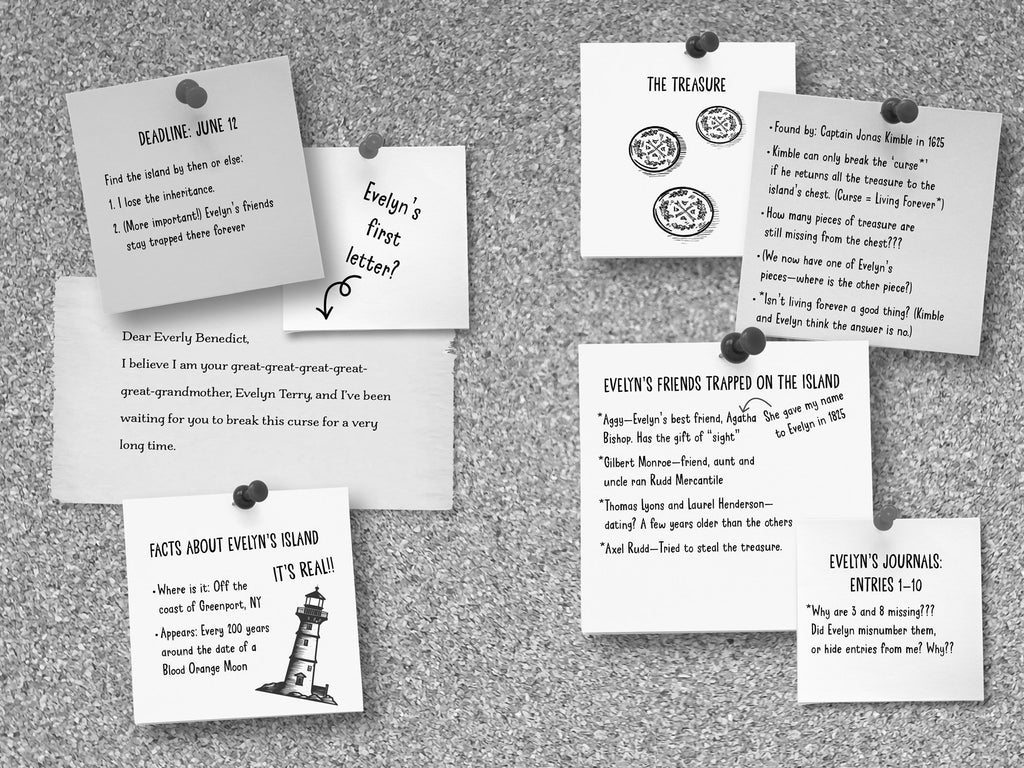 DEADLINE: JUNE 12
Find the island by then or else:
1. I lose the inheritance.
2. (More important!) Evelyn's friends
stay trapped there forever
Evelyn's
first
letter?
Dear Everly Benedict,
I believe I am your great-great-great-great-
great-grandmother, Evelyn Terry, and I've been
waiting for you to break this curse for a very
long time.
FACTS ABOUT EVELYN'S ISLAND
IT'S REAL!!
• Where is it: Off the
coast of Greenport, NY
• Appears: Every 200 years
around the date of a
Blood Orange Moon
THE TREASURE
• Found by: Captain Jonas Kimble in 1625
• Kimble can only break the 'curse*'
if he returns all the treasure to the
island's chest. (Curse = Living Forever*)
• How many pieces of treasure are
still missing from the chest???
• (We now have one of Evelyn's
pieces—where is the other piece?)
• *Isn't living forever a good thing? (Kimble
and Evelyn think the answer is no.)
EVELYN'S FRIENDS TRAPPED ON THE ISLAND
*Aggy—Evelyn's best friend, Agatha
Bishop. Has the gift of "sight"
She gave my name
to Evelyn in 1825
*Gilbert Monroe—friend, aunt and
uncle ran Rudd Mercantile
*Thomas Lyons and Laurel Henderson—
dating? A few years older than the others
*Axel Rudd—Tried to steal the treasure.
EVELYN'S JOURNALS:
ENTRIES 1–10
*Why are 3 and 8 missing???
Did Evelyn misnumber them,
or hide entries from me? Why??